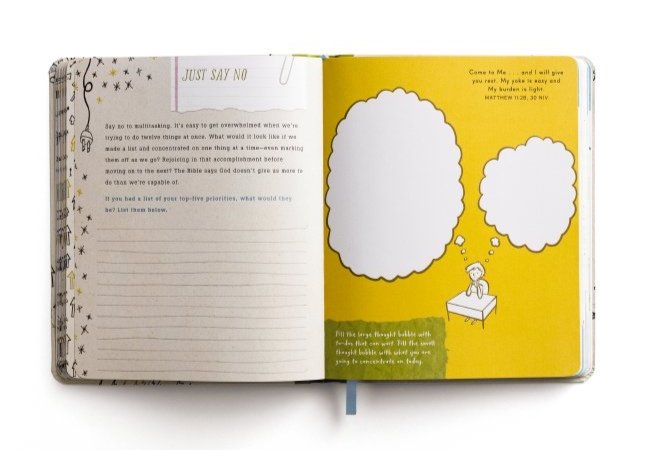 JUST SAY NO
Say no to multitasking. It's easy to get overwhelmed when we're
trying to do twelve things at once. What would it look like if we
made a list and concentrated on one thing at a time—even marking
them off as we go? Rejoicing in that accomplishment before
moving on to the next? The Bible says God doesn't give us more to
do than we're capable of.
If you had a list of your top-five priorities, what would they
be? List them below.
Come to Me . . . and I will give
you rest. My yoke is easy and
My burden is light.
MATTHEW 11:28, 30 NIV
Fill the large thought bubble with
to-dos that can wait. Fill the small
thought bubble with what you are
going to concentrate on today.